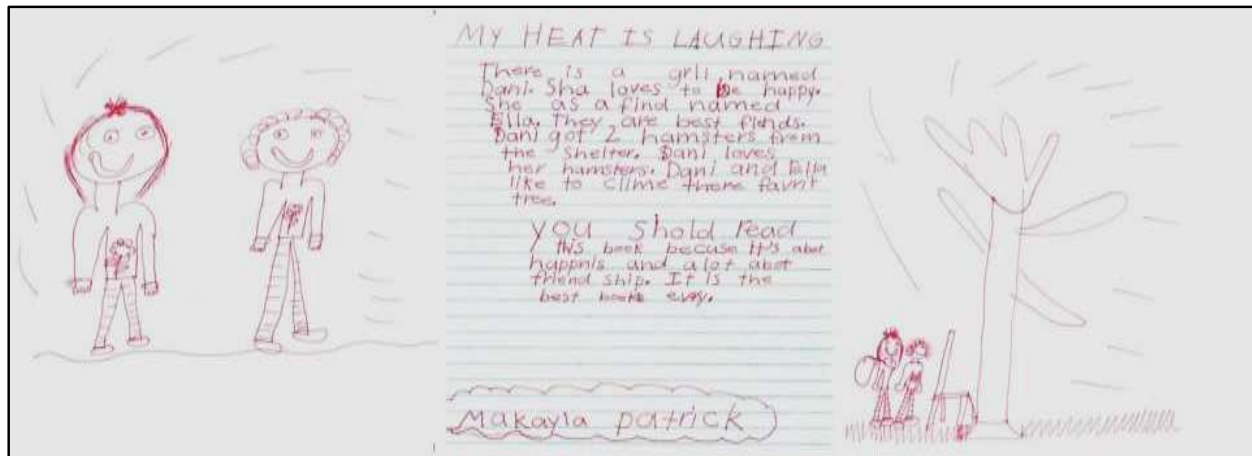 MY HEAT IS LAUGHING
There is a grli named
Dani. Sha loves to be happy.
She as a find named
Ella. They are best fiends.
Dani got 2 hamsters from
the shelter. Dani loves
her hamsters. Dani and Ella
like to clime there favrit
tree.
you shold read
this book becuse it's abot
happnis and alot abot
friend ship. It is the
best book evry.
Makayla patrick